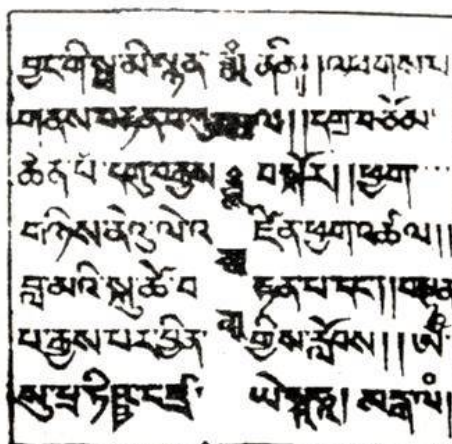 བྱང་གི་སྒྲ་མི་སྙན་ །།འཕགས་པ
གནས་བརྟན་བ་ཀུ་ལ། །དགྲ་བཅོམ
ཆེན་པོ་དགུ་བརྒྱས་ བསྐོར། །ཕྱག
གཉིས་ནེའུ་ལེ་ འཛིན་ཕྱག་འཚལ། །
བླ་མའི་སྐུ་ཚེ་བ རྟན་པ་དང་། །བསྟན
པ་རྒྱས་པར་བྱིན་ གྱིས་རློབས། །ཨོཾ་
སུ་པྲ་ཏིཥྛ་བཛྲ་ ཡེ་སྭཱཧཱ། མངྒ་ལཾ